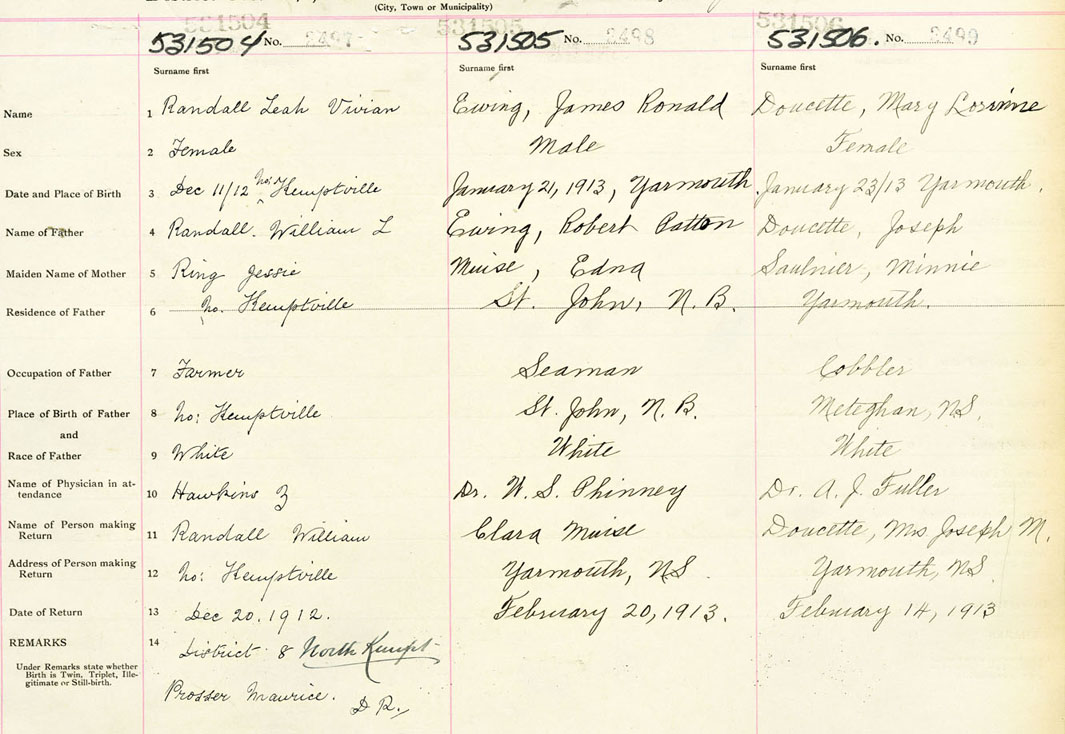 (City, Town or Municipality)
531504 531505 531506
531504 No. 2497 531505 No. 2498 531506. No. 2499
Surname first Surname first Surname first
Name 1 Randall Leah Vivian Ewing, James Ronald Doucette, Mary Lorinne
Sex 2 Female Male Female
Date and Place of Birth 3 Dec 11/12 No: Kemptville January 21, 1913, Yarmouth January 23/13 Yarmouth.
Name of Father 4 Randall. William L Ewing, Robert Patton Doucette, Joseph
Maiden Name of Mother 5 Ring Jessie Muise, Edna Saulnier, Minnie
Residence of Father 6 No. Kemptville St. John, N.B. Yarmouth.
Occupation of Father 7 Farmer Seaman Cobbler
Place of Birth of Father 8 No: Kemptville St. John, N.B. Meteghan, NS.
and
Race of Father 9 White White White
Name of Physician in at-
tendance 10 Hawkins Z Dr. W. S. Phinney Dr. A. J. Fuller
Name of Person making
Return 11 Randall William Clara Muise Doucette, Mrs. Joseph M.
Address of Person making
Return 12 No: Kemptville Yarmouth, NS. Yarmouth, NS.
Date of Return 13 Dec 20. 1912. February 20, 1913. February 14, 1913
REMARKS 14 District 8 North Kempt
Under Remarks state whether
Birth is Twin, Triplet, Ille-
gitimate or Still-birth.
Prosser Maurice. D R.